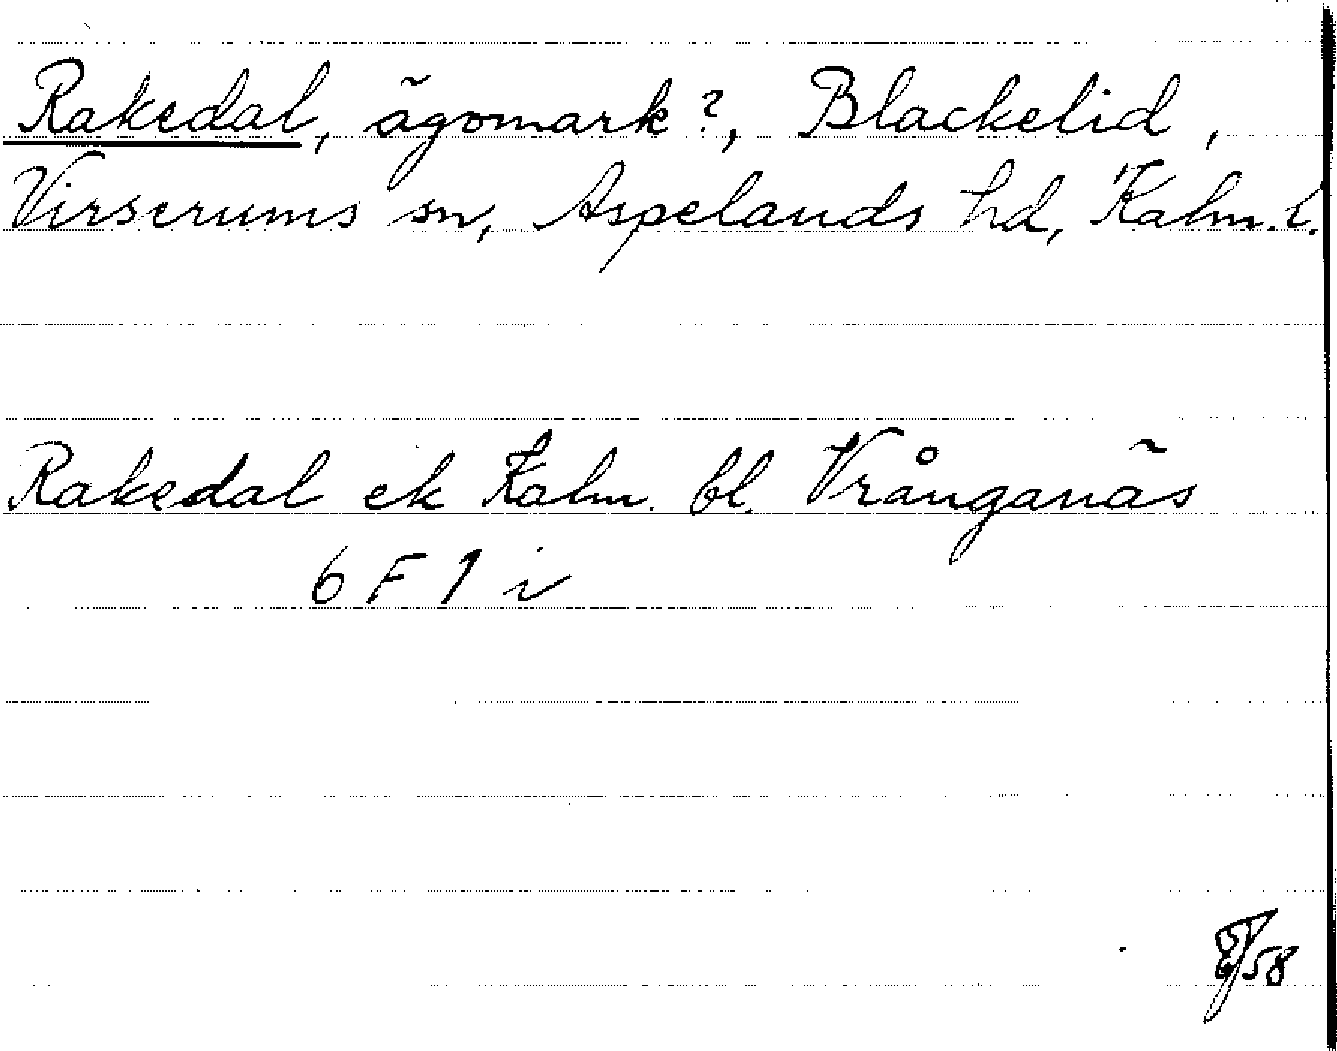 Rakedal, ägomark?, Blackelid,
Virserums sn, Aspelands hd, Kalm. l.
Rakedal ek Kalm. bl. Vrånganäs
6 F 1 i
58